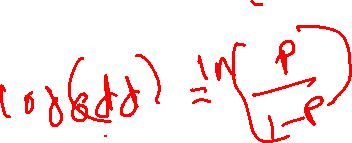 log(odd) = ln(P/(1-P))